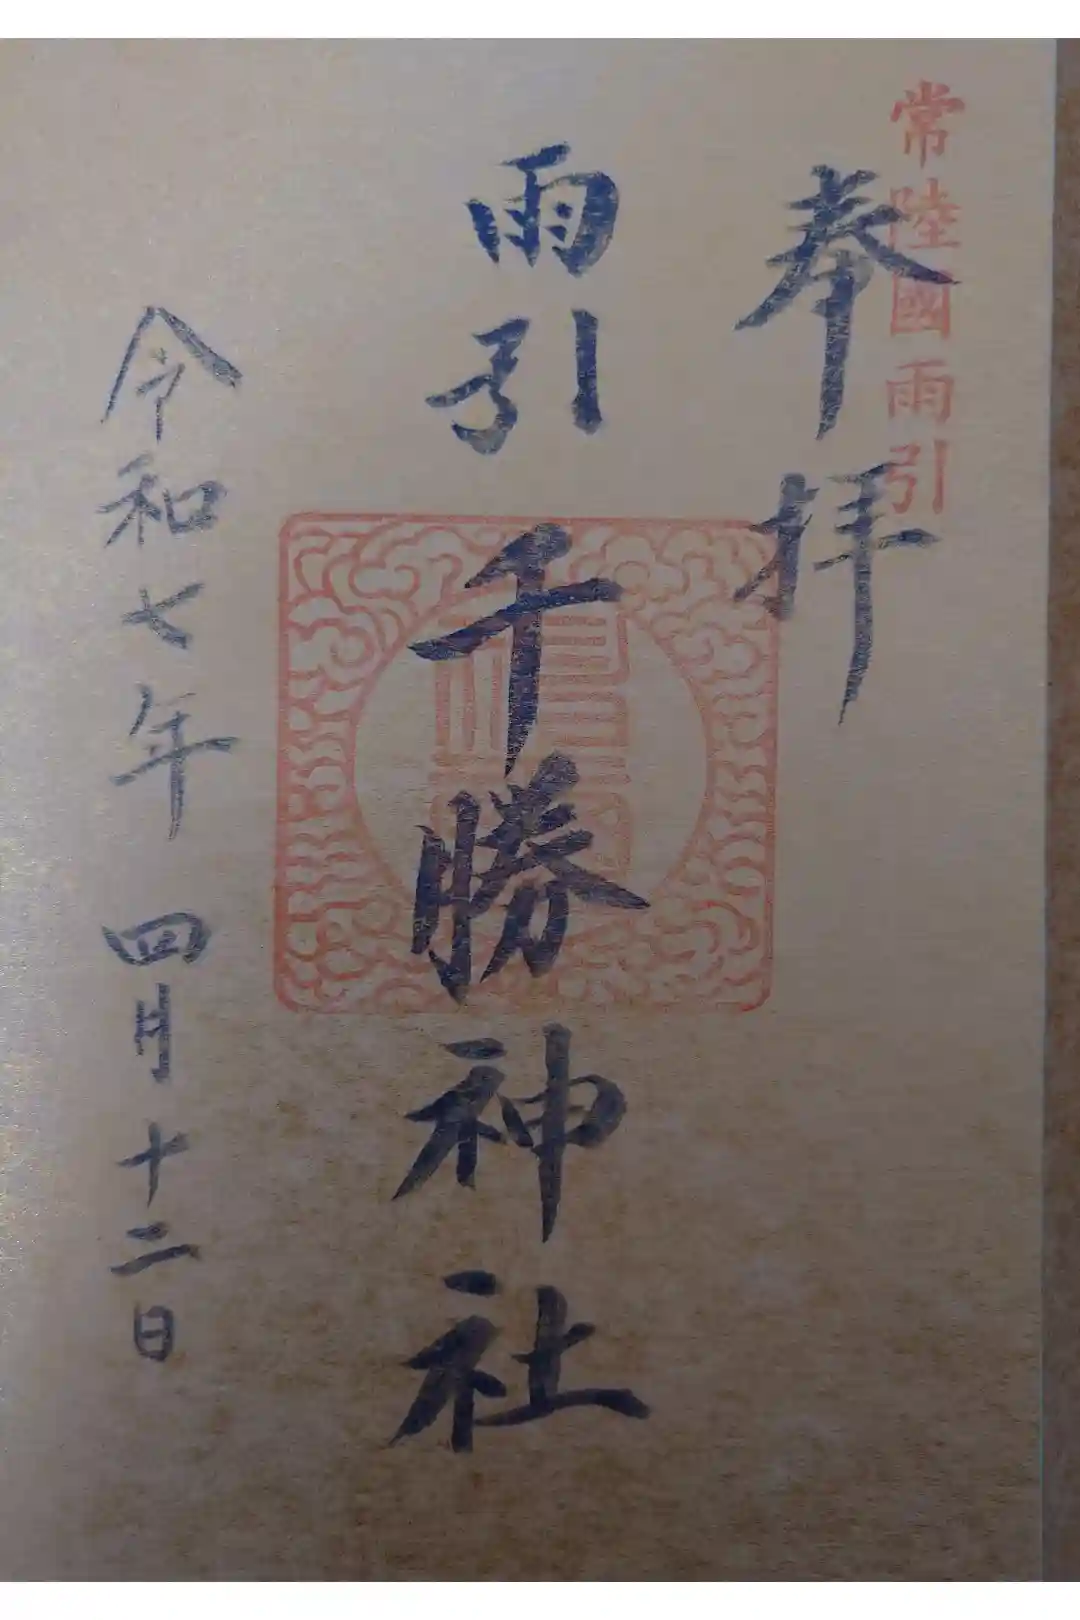 常陸國雨引
奉拝
雨引千勝神社
令和七年四月十二日